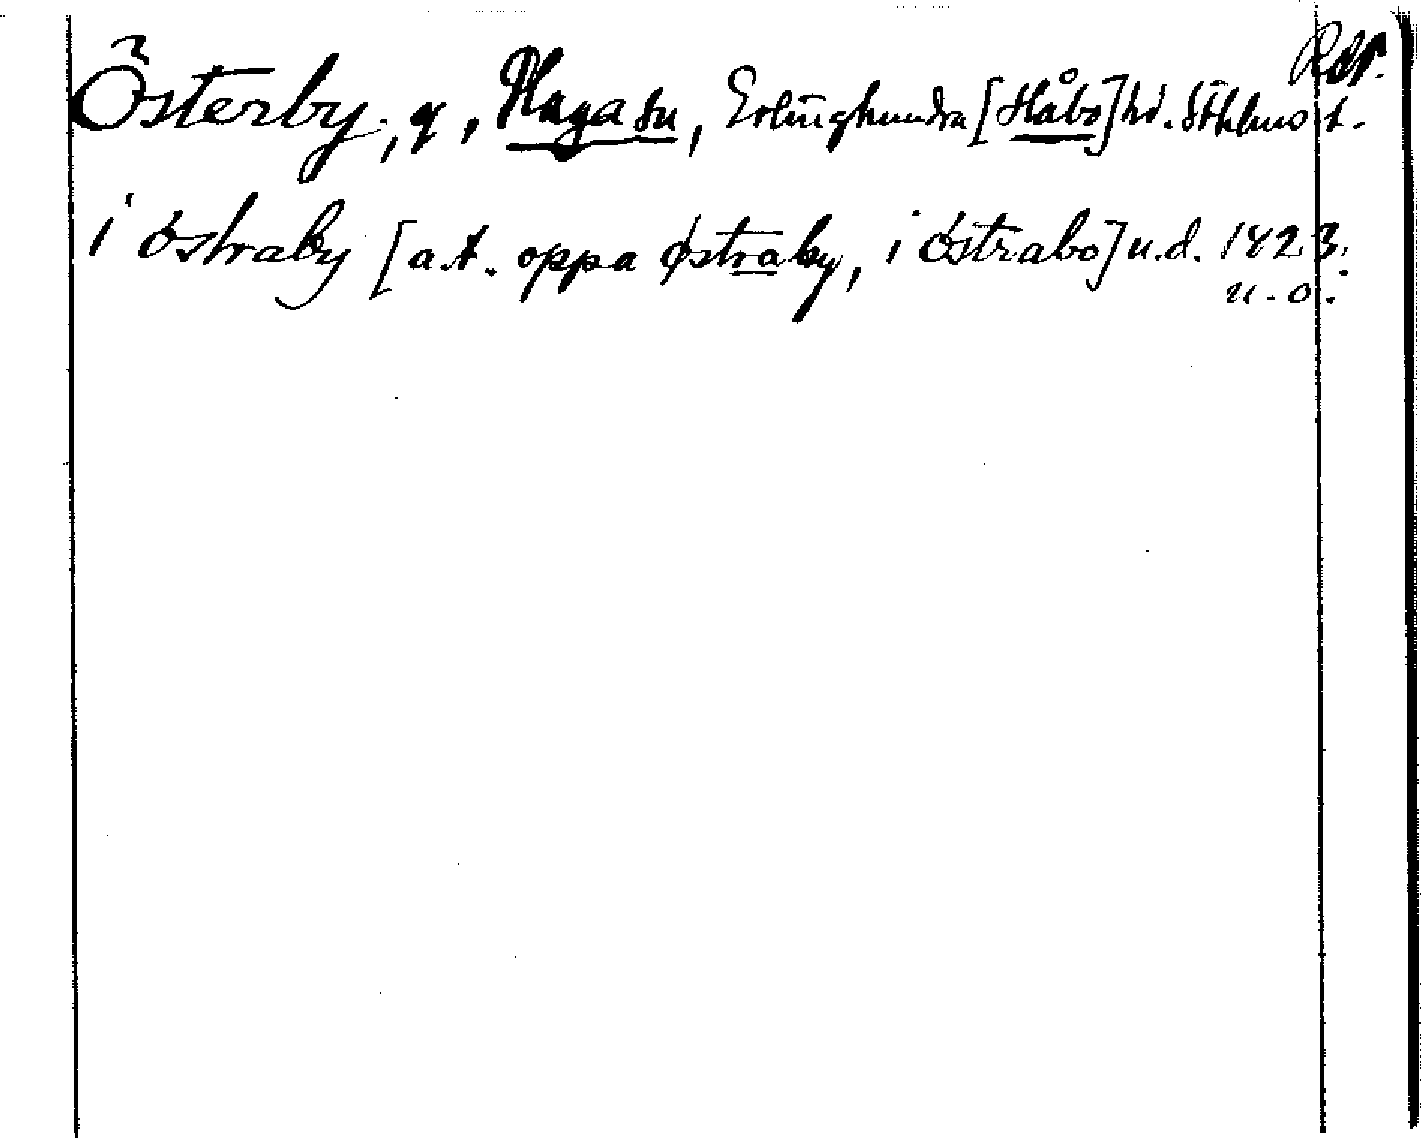 Österby, g, Haga sn, Erlinghundra [Håbo] hd. Sthlms l.
i östraby [a.t. oppa östraby, i östrabo] u.d. 1423.
u.o.